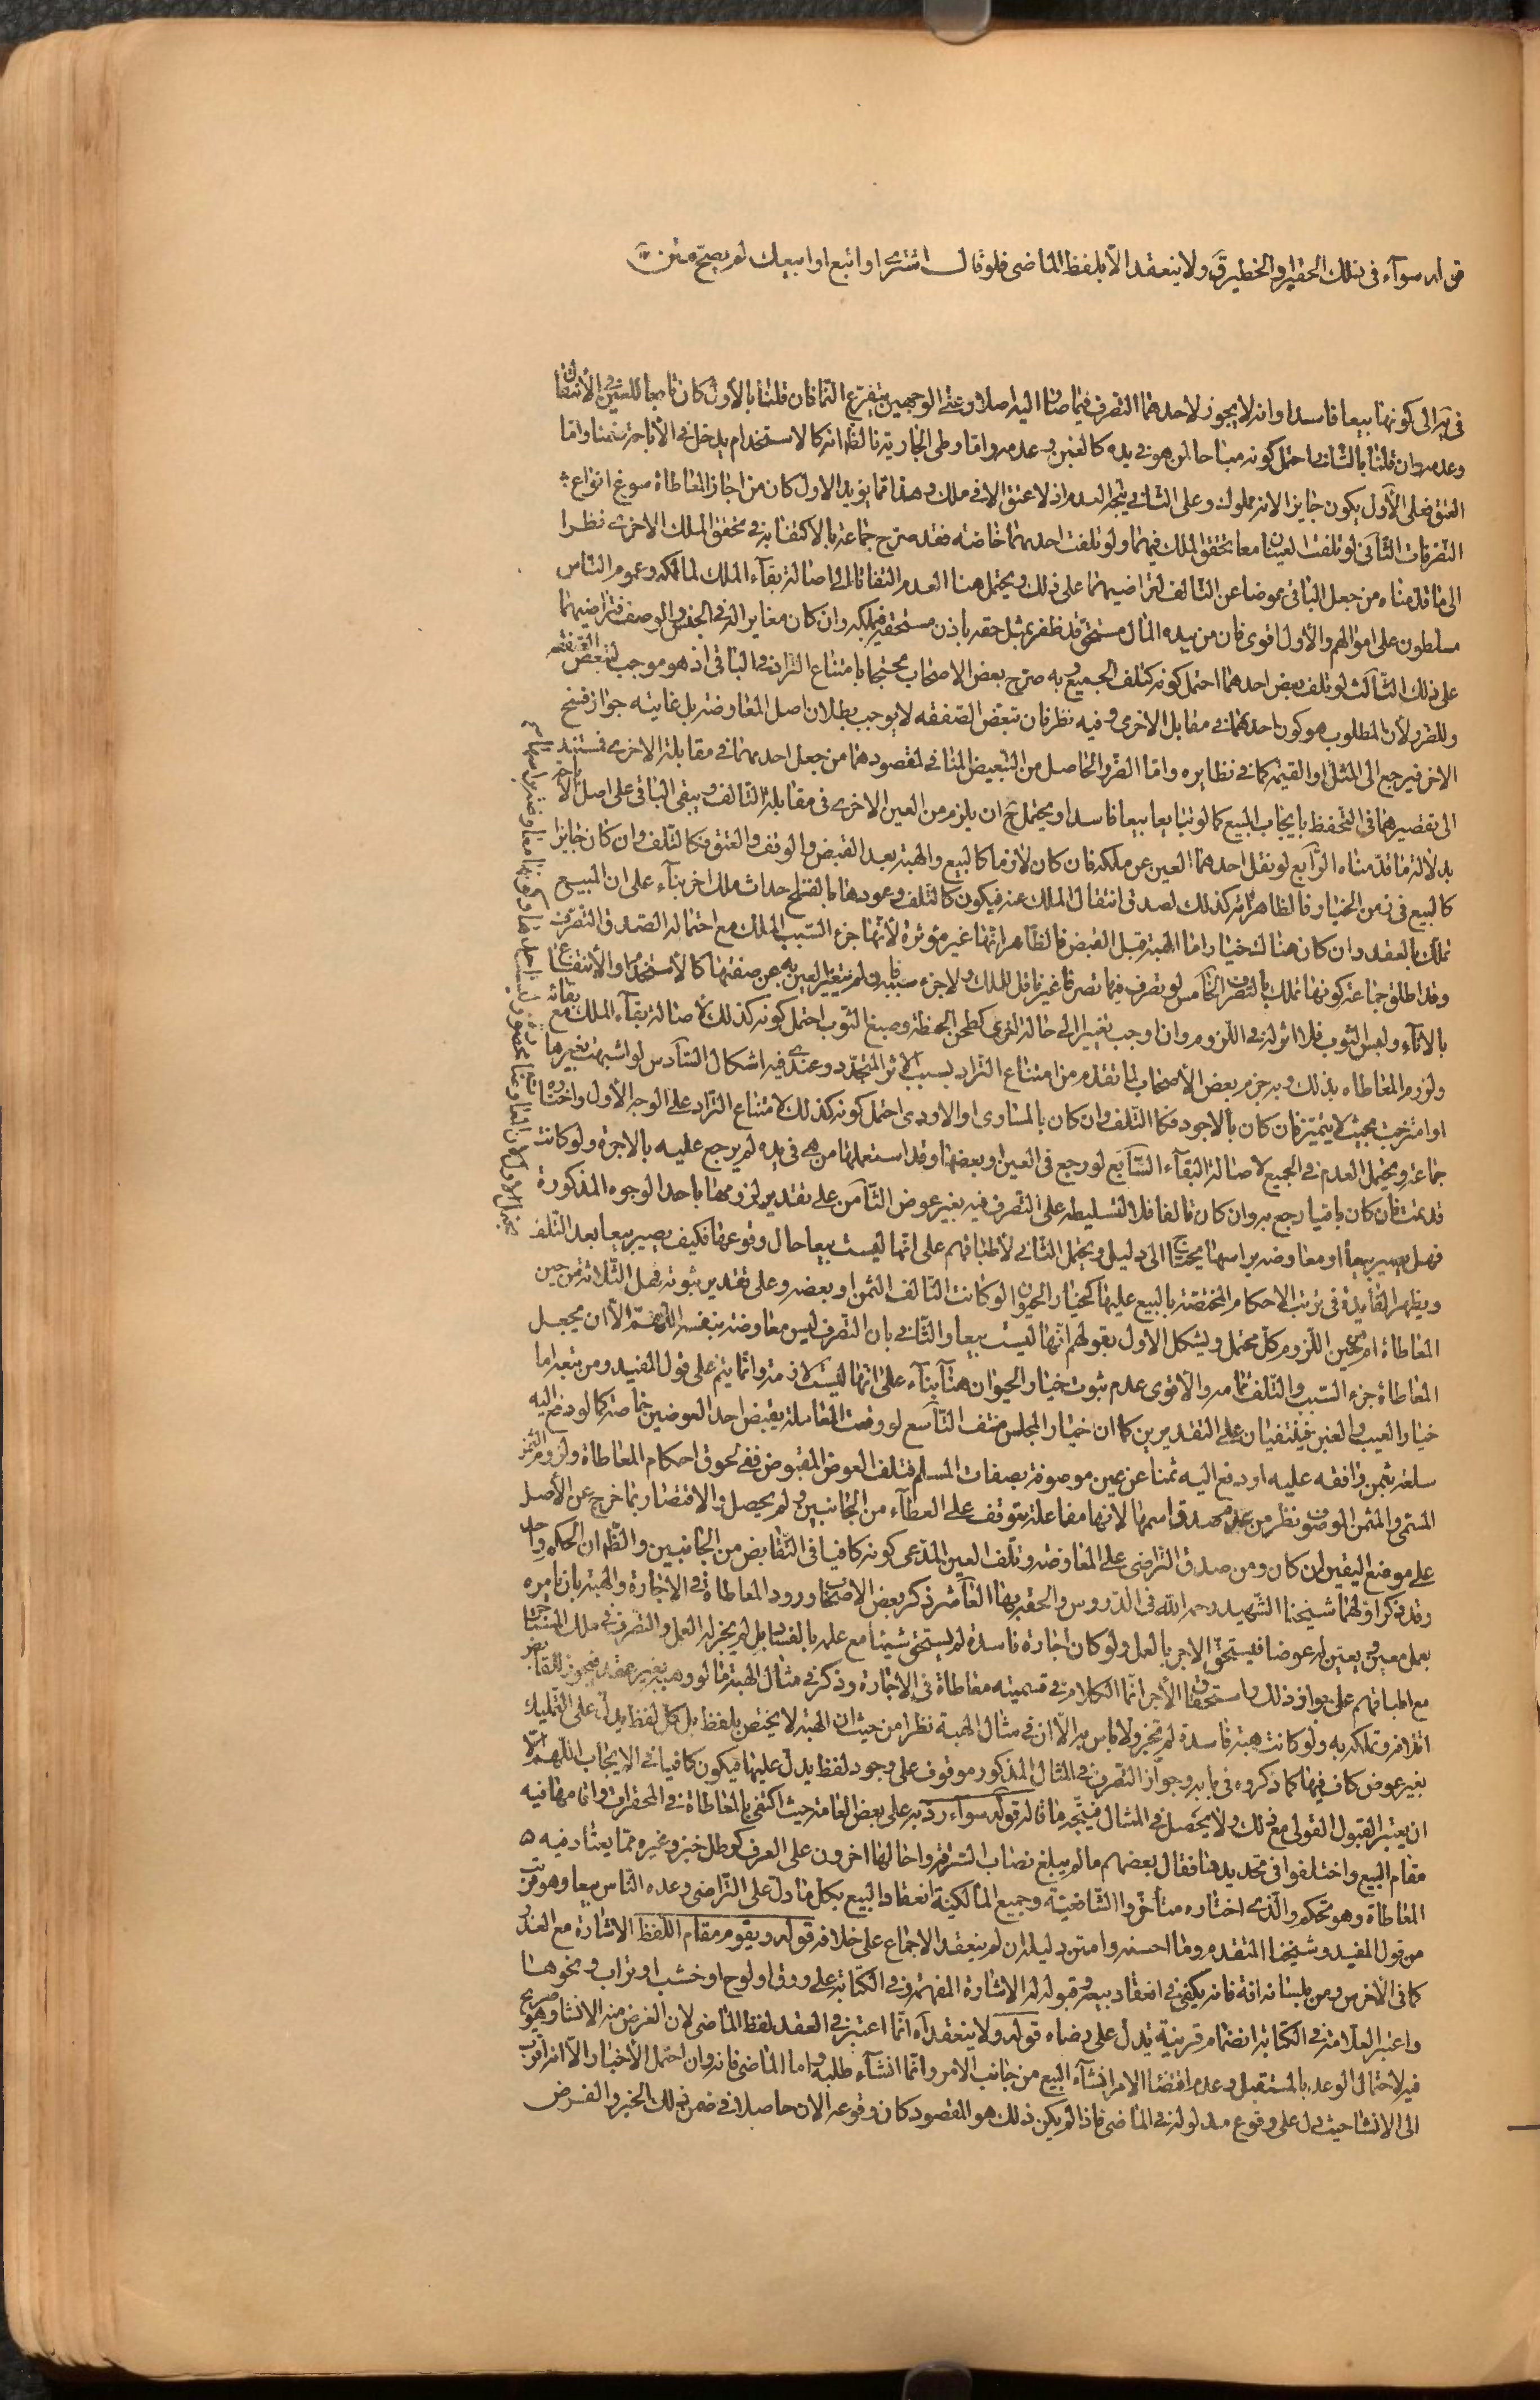 قوله سوآء فى ذلك الحقير والخطير قَ ولا ينعقد الّا بلفظ الماضى فلو قال اشترِ او ابتع او ابيعك لم يصحّ
فى يَه الى كونها بيعا فاسدا وانه لا يجوز لاحدهما التصرف فيما صار اليه اصلا وعلى الوجهين يتفرع النما فان قلنا بالأول كان تابعا للعين فى الأنتقال
وعدمه وان قلنا بالثانى احتمل كونه مباحا لمن هو فى يده كالعين وعدمه واما وطى الجارية فالظ انه كالاستخدام يدخل فى الأباحة ضمنا واما
العتق فعلى الأول يكون جايزا لانه مملوك وعلى الثانى يتجه العدم اذ لا عتق الا فى ملك وهذا مما يؤيد الاول كان من اجاز المعاطاة سوغ انواع
التصرفات الثانى لو تلفت العينان معا تحقق الملك فيهما ولو تلفت احديهما خاصة فقد صرح جماعة بالاكتفا به فى تحقق الملك الاخرى نظرا
الى ما قدمناه من جعل الباقى عوضا عن التالف لتراضيهما على ذلك ويحتمل هنا العدم التفاتا الى اصالة بقآء الملك لمالكه وعموم الناس
مسلطون على اموالهم والأول اقوى فان من بيده المال مستحق قد ظفر بمثل حقه باذن مستحقه فيملكه وان كان مغايرا له فى الجنس والوصف لتراضيهما
على ذلك الثالث لو تلف بعض احدهما احتمل كونه كتلف الجميع وبه صرح بعض الاصحاب محتجا بامتناع التراد فى الباقى اذ هو موجب لتبعض الصفقة
وللضرر لأن المطلوب هو كون احدهما فى مقابل الاخرى وفيه نظر فان تبعض الصفقه لا يوجب بطلان اصل المعاوضه بل غايته جواز فسخ
الاخر فيرجع الى المثل او القيمة كما فى نظايره واما الضرر الحاصل من التبعيض المنافى لمقصودهما من جعل احديهما فى مقابلة الاخرى فمستند
الى تقصيرهما فى التحفظ بايجاب البيع كما لو تبايعا بيعا فاسدا ويحتمل ح ان يلزم من العين الاخرى فى مقابلة التالف ويبقى الباقى على اصل الأباحة
بدلالة ما قدمناه الرّابع لو نقل احدهما العين عن ملكه فان كان لازما كالبيع والهبة بعد القبض والوقف والعتق فكالتلف وان كان جايزا
كالبيع فى زمن الخيار فالظاهر انه كذلك لصدق انتقال الملك عنه فيكون كالتلف وعودها بالفسخ احداث ملك اخر بنآء على ان المبيع
تملك بالعقد وان كان هناك خيار اما الهبة قبل القبض فالظاهر انها غير مؤثرة لأنها جزء السبب المملك مع احتماله لصدق التصرف
وقد اطلق جماعة كونها تملك بالتصرف الخامس لو تصرف فيها تصرفا غير ناقل للملك ولا جزء سببه فان لم يتغير العين به عن صفتها كالأستخدام والأنتفاع
بالانآء ولبس الثوب فلا اثر له فى اللزوم وان اوجب تغييرا الى حالة اخرى كطحن الحنطة وصبغ الثوب احتمل كونه كذلك لأصالة بقآء الملك مع بقائه
ولزوم المعاطاه بذلك وبه جزم بعض الأصحاب لما تقدم من امتناع التراد بسبب الاثر المتجدد وعندى فيه اشكال السّادس لو اشتبهت بغيرها
او امتزجت بحيث لا يتميز فان كان بالاجود فكالتلف وان كان بالمساوى او الاردى احتمل كونه كذلك لامتناع التراد على الوجه الأول واختاره
جماعة ويحتمل العدم فى الجميع لاصالة البقآء السّابع لو رجع فى العين او بعضها وقد استعملها من هى فى يده لم يرجع عليه بالاجرة ولو كانت
قد نمت فان كان باقيا رجع به وان كان تالفا فلا لتسليطه على التصرف فيه بغير عوض الثامن على تقدير لزومها باحد الوجوه المذكورة
فهل يصير بيعا او معاوضه براسها يحتمل الى دليل ويحتمل الثانى لأطباقهم على انها ليست بيعا حال وقوعها فكيف يصير بيعا بعد التلف
ويظهر الفايدة فى ترتب الاحكام المختصة بالبيع عليها كخيار الحيوان لو كانت التالف الثمن او بعضه وعلى تقدير ثبوته فهل الثلاثة من حين
المعاطاة ام من حين اللزوم كل محتمل ويشكل الاول بقولهم انها ليست بيعا والثانى بان التصرف ليس معاوضة بنفسه اللهم الّا ان يجعل
المعاطاة جزء السبب والتلف تمامه والأقوى عدم ثبوت خيار الحيوان هنا بنآء على انها ليست لازمة وانما يتم على قول المفيد ومن تبعه اما
خيار العيب والغبن فيثبتان على التقديرين كما ان خيار المجلس منتف التّاسع لو وقعت المعاملة بقبض احد العوضين خاصة كما لو دفع اليه
سلعة بثمن وافقه عليه او دفع اليه ثمنا عن عين موصوفة بصفات المسلم فتلف العوض المقبوض ففى لحوق احكام المعاطاة ولزوم الثمن
المسمى والمثمن الموصوف نظر من عدم صدق اسمها لانها مفاعلة يتوقف على العطآء من الجانبين ولم يحصل والاقتصار بما خرج عن الأصل
على موضع اليقين ان كان ومن صدق التراضى على المعاوضه وتلف العين المدعى كونه كافيا فى التقابض من الجانبين والظ ان الحكم واحد
وقد ذكر اولهما شيخنا الشهيد رحمه الله فى الدروس والحقه بها العاشر ذكر بعض الاصحاب ورود المعاطاة فى الاجارة والهبة بان يامره
بعمل معين ويعين له عوضا فيستحق الاجر بالعمل ولو كان اجارة فاسدة لم يستحق شيئا مع علمه بالفساد بل لم يجز له العمل والتصرف فى ملك المستاجر
مع اطباقهم على جواز ذلك واستحقاق الأجر انما الكلام فى تسميته معاطاة فى الاجارة وذكر فى مثال الهبة ما لو وهبه بغير عقد فيجوز للقابض
اتلافه وتملكه به ولو كانت هبة فاسدة لم يجز ولا باس به الّا ان فى مثال الهبة نظرا من حيث ان الهبة لا يختص بلفظ بل كل لفظ يدل على التمليك
بغير عوض كاف فيها كما ذكروه فى بابه وجواز التصرف فى المثال المذكور موقوف على وجود لفظ يدل عليها فيكون كافيا فى الايجاب اللهم الّا
ان يعتبر القبول القولى مع ذلك ولا يحصل فى المثال فيتّجه ما قاله قوله سوآء رد به على بعض العامة حيث اكتفى بالمعاطاة فى المحقرات واقامها فيه
مقام البيع واختلفوا فى تحديدها فقال بعضهم ما لم يبلغ نصاب السرقة واحالها اخرون على العرف كرطل خبز وغيره مما يعتاد فيه
المعاطاة وهو تحكم والّذى اختاره متأخروا الشافعية وجميع المالكية انعقاد البيع بكل ما دل على التراضى وعده الناس بيعا وهو قريب
من قول المفيد وشيخنا المتقدم وما احسنه وامتن دليله ان لم ينعقد الاجماع على خلافه قوله ويقوم مقام اللفظ الاشارة مع العذر
كما فى الاخرس ومن بلسانه افة فانه يكفى فى انعقاد بيعه وقبوله له الاشارة المفهمة وفى الكتابة على ورق او لوح او خشب او تراب ونحوها
واعتبر العلامة فى الكتابة انضمام قرينية تدل على رضاه قوله ولا ينعقد آه انما اعتبر فى العقد لفظ الماضى لان الغرض منه الانشا وهو صريح
فيه لاحتمال الوعد بالمستقبل وعدم اقتضا الامر انشآء البيع من جانب الامر وانما انشآء طلبه واما الماضى فانه وان احتمل الأخبار الّا انه اقرب
الى الانشا حيث دل على وقوع مدلوله فى الماضى فاذا لم يكن ذلك هو المقصود كان وقوعه الان حاصلا فى ضمن ذلك الخبر والغرض